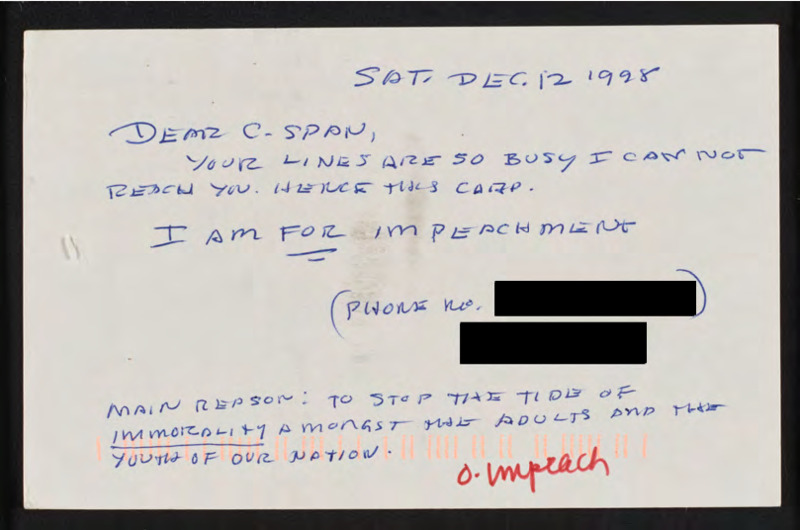 SAT. DEC. 12 1998
DEAR C-SPAN,
YOUR LINES ARE SO BUSY I CAN NOT
REACH YOU. HENCE THIS CARD.
I AM FOR IMPEACHMENT
(PHONE NO. )
MAIN REASON: TO STOP THE TIDE OF
IMMORALITY AMONGST THE ADULTS AND THE
YOUTH OF OUR NATION.
O. Impeach